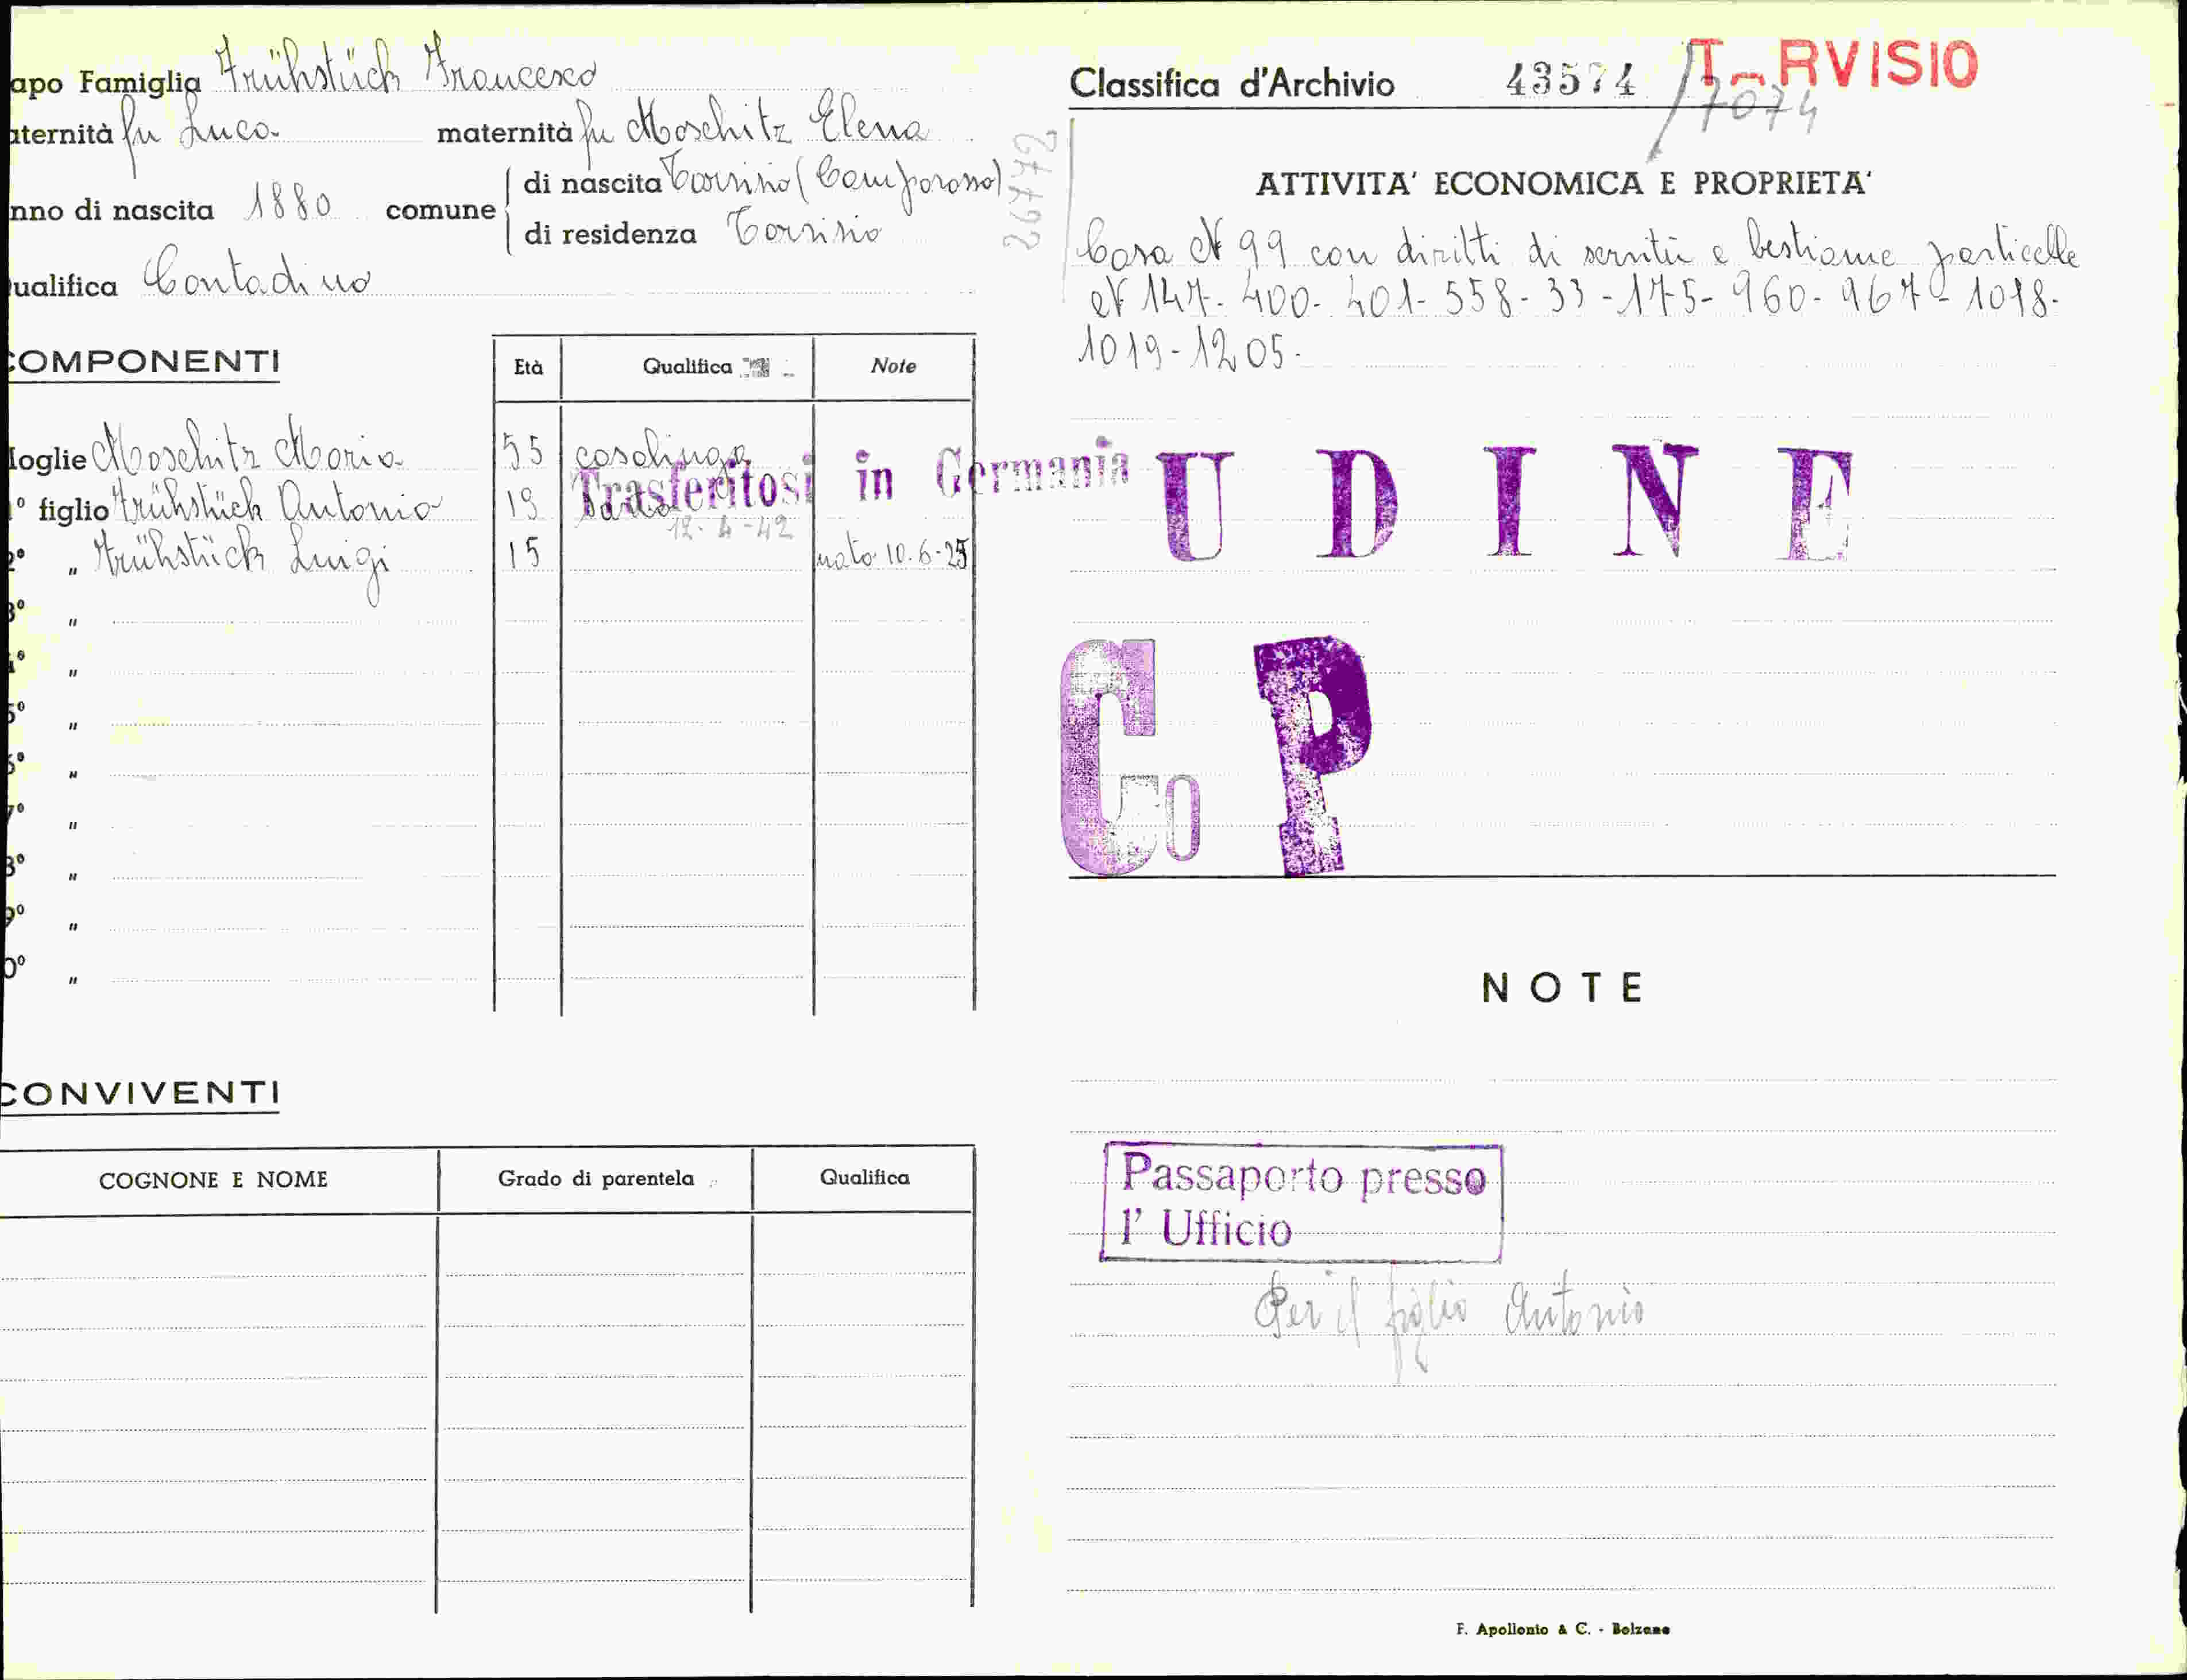 apo Famiglia Frühstück Francesco
aternità fu Luca maternità fu Moschitz Elena
nno di nascita 1880 comune di nascita Tarvisio (Camporosso)
di residenza Tarvisio
ualifica Contadino
26772
COMPONENTI
Età Qualifica Note
loglie Moschitz Maria 55 casalinga
Trasferitosi in Germania
1° figlio Frühstück Antonio 19
12-4-42
2° " Frühstück Luigi 15 nato 10.6.25
3° "
4° "
5° "
6° "
7° "
8° "
9° "
0° "
CONVIVENTI
COGNONE E NOME Grado di parentela Qualifica
Classifica d'Archivio 43574 / T RVISIO
7074
ATTIVITA' ECONOMICA E PROPRIETA'
Casa N 99 con diritti di servitù e bestiame particelle
N 147- 400- 401- 558- 33 -175- 960- 967- 1018-
1019-1205-
U D I N E
Co P
NOTE
Passaporto presso
l' Ufficio
Per il figlio Antonio
F. Apollonio & C. - Bolzano